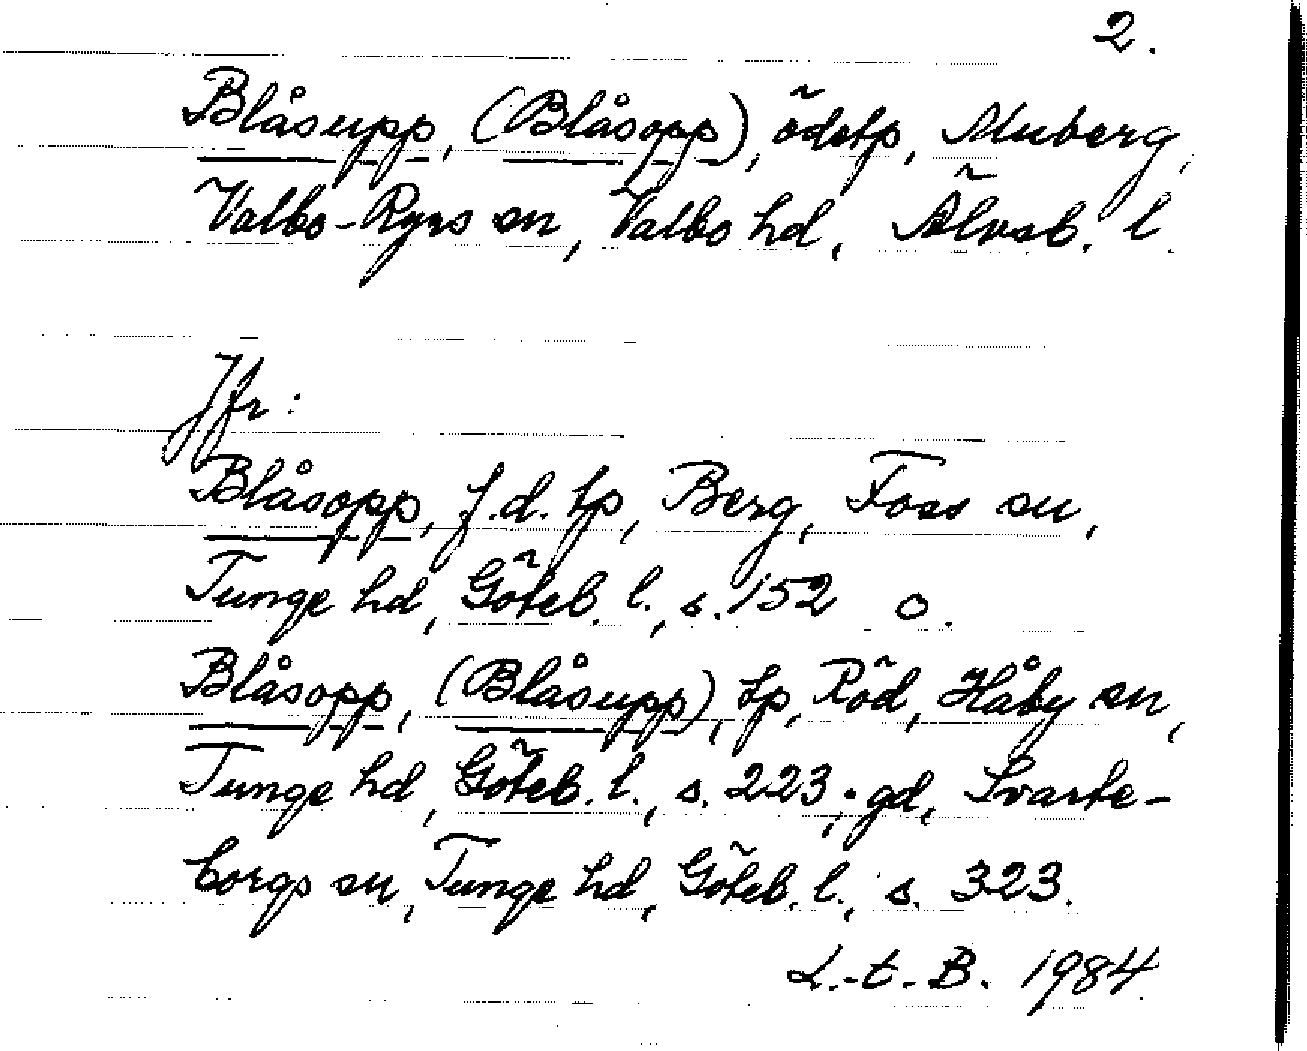 2.
Blåsupp, (Blåsopp), ödetp, Muberg,
Valbo-Ryrs sn, Valbo hd, Älvsb. l.
Jfr:
Blåsopp, f.d. tp, Berg, Foss sn,
Tunge hd, Göteb. l., s. 152 o.
Blåsopp, (Blåsupp), tp, Röd, Håby sn,
Tunge hd, Göteb. l., s. 223; gd, Svarte-
borgs sn, Tunge hd, Göteb. l., s. 323.
L.-t. B. 1984.